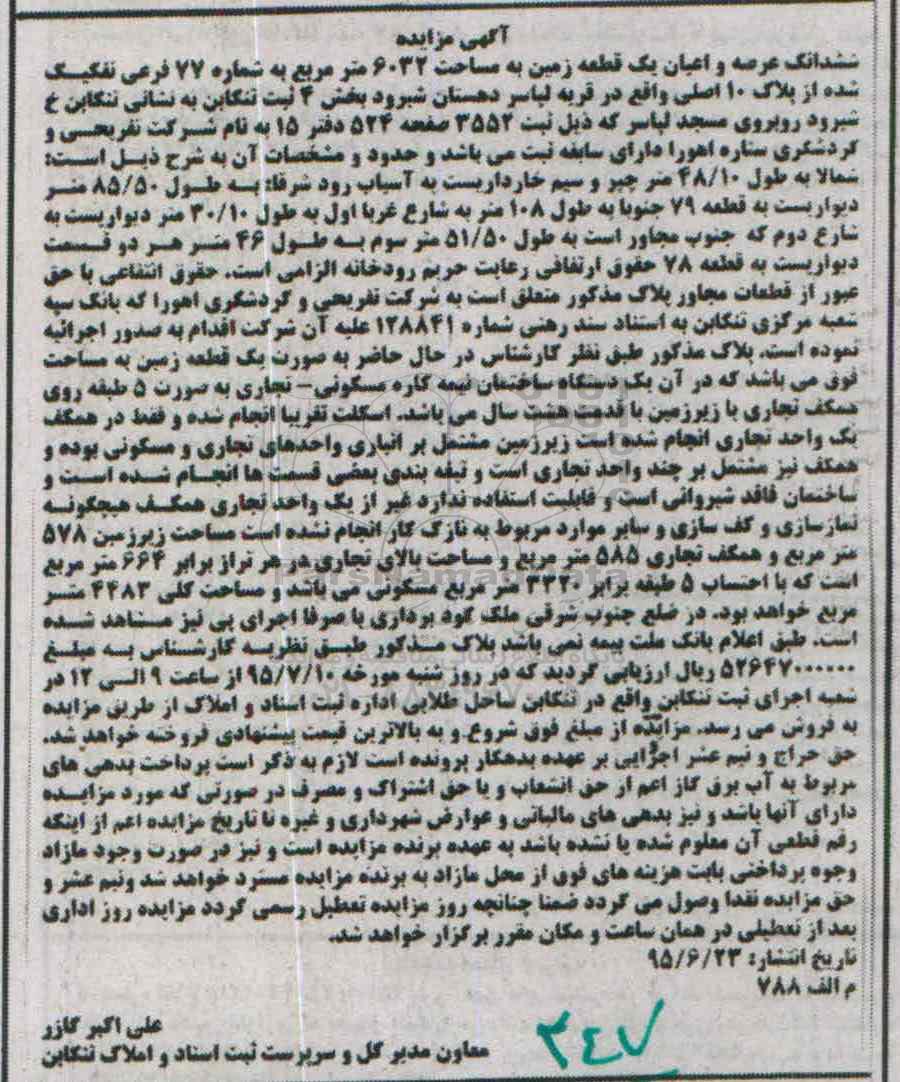 آگهی مزایده
ششدانگ عرصه و اعیان یک قطعه زمین به مساحت ۶۰۳۲ متر مربع به شماره ۷۷ فرعی تفکیک
شده از پلاک ۱۰ اصلی واقع در قریه لپاسر دهستان شیرود بخش ۴ ثبت تنکابن به نشانی تنکابن خ
شیرود روبروی مسجد لپاسر که ذیل ثبت ۳۵۵۲ صفحه ۵۲۴ دفتر ۱۵ به نام شرکت تفریحی و
گردشگری ستاره اهورا دارای سابقه ثبت می باشد و حدود و مشخصات آن به شرح ذیل است:
شمالا به طول ۴۸/۱۰ متر چپر و سیم خارداریست به آسیاب رود شرقا: به طول ۸۵/۵۰ متر
دیواریست به قطعه ۷۹ جنوبا به طول ۱۰۸ متر به شارع غربا اول به طول ۳۰/۱۰ متر دیواریست به
شارع دوم که جنوب مجاور است به طول ۵۱/۵۰ متر سوم به طول ۴۶ متر هر دو قسمت
دیواریست به قطعه ۷۸ حقوق ارتفاقی رعایت حریم رودخانه الزامی است. حقوق انتفاعی با حق
عبور از قطعات مجاور پلاک مذکور متعلق است به شرکت تفریحی و گردشگری اهورا که بانک سپه
شعبه مرکزی تنکابن به استناد سند رهنی شماره ۱۲۸۸۴۱ علیه آن شرکت اقدام به صدور اجرائیه
نموده است. پلاک مذکور طبق نظر کارشناس در حال حاضر به صورت یک قطعه زمین به مساحت
فوق می باشد که در آن یک دستگاه ساختمان نیمه کاره مسکونی- تجاری به صورت ۵ طبقه روی
همکف تجاری با زیرزمین با قدمت هشت سال می باشد. اسکلت تقریبا انجام شده و فقط در همکف
یک واحد تجاری انجام شده است زیرزمین مشتمل بر انباری واحدهای تجاری و مسکونی بوده و
همکف نیز مشتمل بر چند واحد تجاری است و تیغه بندی بعضی قسمت ها انجام شده است و
ساختمان فاقد شیروانی است و قابلیت استفاده ندارد غیر از یک واحد تجاری همکف هیچگونه
نمازسازی و کف سازی و سایر موارد مربوط به نازک کار انجام نشده است مساحت زیرزمین ۵۷۸
متر مربع و همکف تجاری ۵۸۵ متر مربع و مساحت بالای تجاری در هر تراز برابر ۶۶۴ متر مربع
است که با احتساب ۵ طبقه برابر ۳۳۲۰ متر مربع مسکونی می باشد و مساحت کلی ۴۴۸۳ متر
مربع خواهد بود. در ضلع جنوب شرقی ملک گود برداری با صرفا اجرای پی نیز مشاهد شده
است. طبق اعلام بانک ملت بیمه نمی باشد پلاک مذکور طبق نظریه کارشناس به مبلغ
۵۲۶۴۷۰۰۰۰۰۰ ریال ارزیابی گردید که در روز شنبه مورخه ۹۵/۷/۱۰ از ساعت ۹ الی ۱۲ در
شعبه اجرای ثبت تنکابن واقع در تنکابن ساحل طلایی اداره ثبت اسناد و املاک از طریق مزایده
به فروش می رسد. مزایده از مبلغ فوق شروع و به بالاترین قیمت پیشنهادی فروخته خواهد شد.
حق حراج و نیم عشر اجرایی بر عهده بدهکار پرونده است لازم به ذکر است پرداخت بدهی های
مربوط به آب برق گاز اعم از حق انشعاب و یا حق اشتراک و مصرف در صورتی که مورد مزایده
دارای آنها باشد و نیز بدهی های مالیاتی و عوارض شهرداری و غیره تا تاریخ مزایده اعم از اینکه
رقم قطعی آن معلوم شده یا نشده باشد به عهده برنده مزایده است و نیز در صورت وجود مازاد
وجوه پرداختی بابت هزینه های فوق از محل مازاد به برنده مزایده مسترد خواهد شد ونیم عشر و
حق مزایده نقدا وصول می گردد ضمنا چنانچه روز مزایده تعطیل رسمی گردد مزایده روز اداری
بعد از تعطیلی در همان ساعت و مکان مقرر برگزار خواهد شد.
تاریخ انتشار: ۹۵/۶/۲۳
م الف ۷۸۸
علی اکبر گازر
معاون مدیر کل و سرپرست ثبت اسناد و املاک تنکابن
۳۴۷